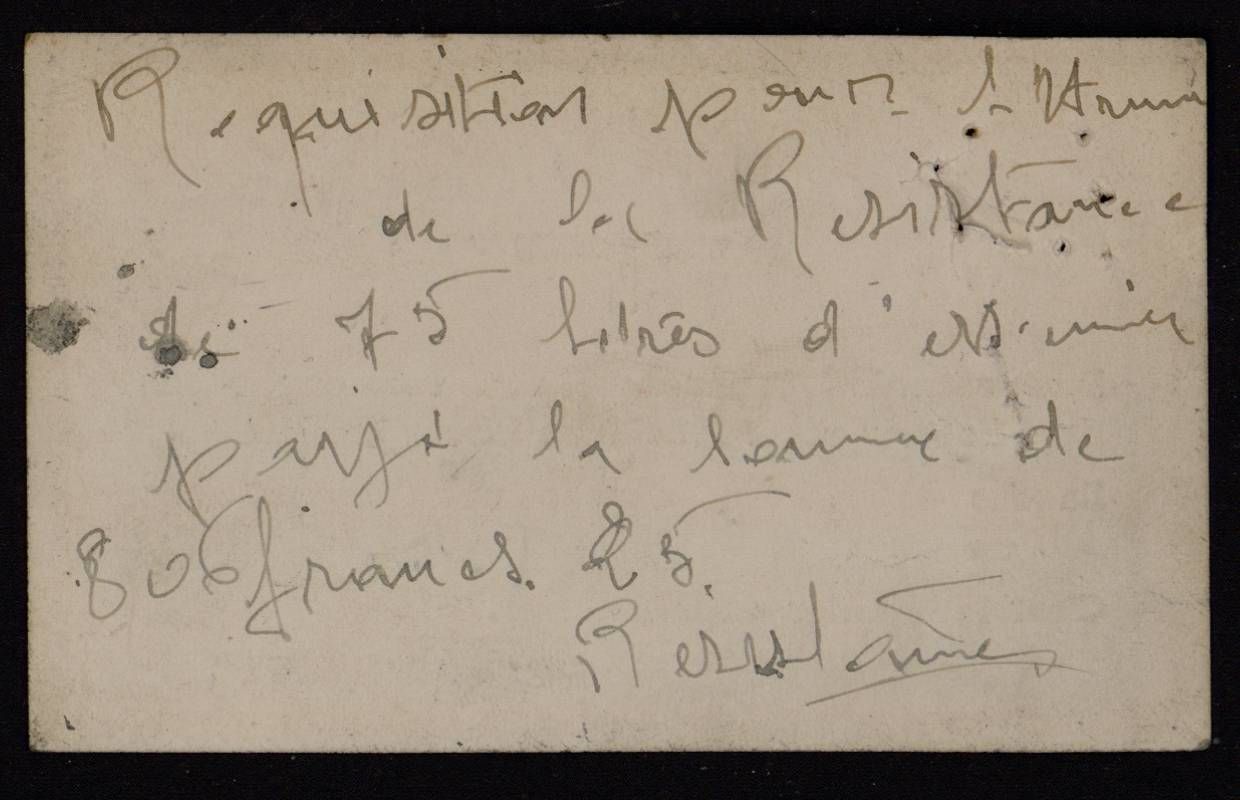 Requisition pour l'Armee
de la Resistance
de 75 litres d'essence
payé la somme de
806 francs. 25.
Resistance